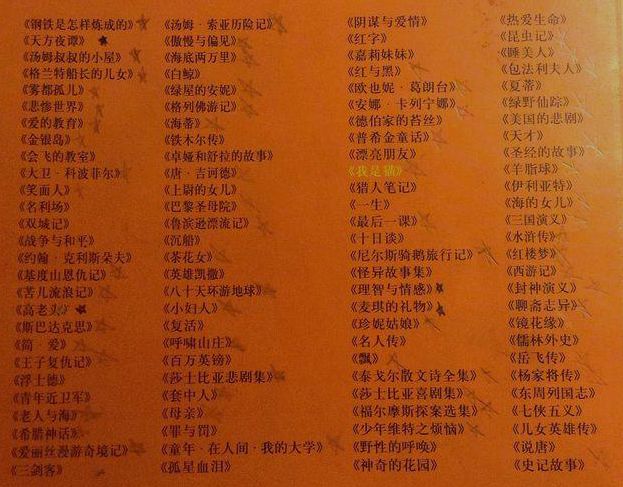 《钢铁是怎样炼成的》
《天方夜谭》
《汤姆叔叔的小屋》
《格兰特船长的儿女》
《雾都孤儿》
《悲惨世界》
《爱的教育》
《金银岛》
《会飞的教室》
《大卫·科波菲尔》
《笑面人》
《名利场》
《双城记》
《战争与和平》
《约翰·克利斯朵夫》
《基度山恩仇记》
《苦儿流浪记》
《高老头》
《斯巴达克思》
《简·爱》
《王子复仇记》
《浮士德》
《青年近卫军》
《老人与海》
《希腊神话》
《爱丽丝漫游奇境记》
《三剑客》
《汤姆·索亚历险记》
《傲慢与偏见》
《海底两万里》
《白鲸》
《绿屋的安妮》
《格列佛游记》
《海蒂》
《铁木尔传》
《卓娅和舒拉的故事》
《唐·吉诃德》
《上尉的女儿》
《巴黎圣母院》
《鲁滨逊漂流记》
《沉船》
《茶花女》
《英雄凯撒》
《八十天环游地球》
《小妇人》
《复活》
《呼啸山庄》
《百万英镑》
《莎士比亚悲剧集》
《套中人》
《母亲》
《罪与罚》
《童年·在人间·我的大学》
《孤星血泪》
《阴谋与爱情》
《红字》
《嘉莉妹妹》
《红与黑》
《欧也妮·葛朗台》
《安娜·卡列宁娜》
《德伯家的苔丝》
《普希金童话》
《漂亮朋友》
《我是猫》
《猎人笔记》
《一生》
《最后一课》
《十日谈》
《尼尔斯骑鹅旅行记》
《怪异故事集》
《理智与情感》
《麦琪的礼物》
《珍妮姑娘》
《名人传》
《飘》
《泰戈尔散文诗全集》
《莎士比亚喜剧集》
《福尔摩斯探案选集》
《少年维特之烦恼》
《野性的呼唤》
《神奇的花园》
《热爱生命》
《昆虫记》
《睡美人》
《包法利夫人》
《夏蒂》
《绿野仙踪》
《美国的悲剧》
《天才》
《圣经的故事》
《羊脂球》
《伊利亚特》
《海的女儿》
《三国演义》
《水浒传》
《红楼梦》
《西游记》
《封神演义》
《聊斋志异》
《镜花缘》
《儒林外史》
《岳飞传》
《杨家将传》
《东周列国志》
《七侠五义》
《儿女英雄传》
《说唐》
《史记故事》